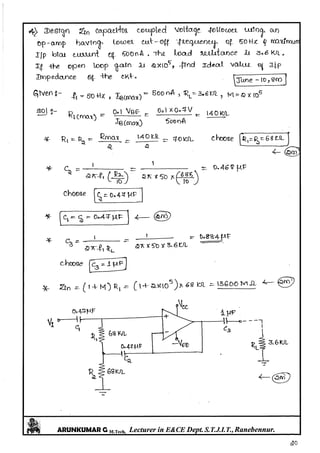 4) Design Zin capacitor coupled voltage follower using an
op-amp having lower cut-off frequency of 50Hz & maximum
I/p bias current of 500nA. The load resistance is 3.6KΩ.
If the open loop gain is 2x10⁵, find Ideal value of I/p
Impedance of the ckt.
June - 10, 8M
Given:- f₁ = 50Hz, IB(max) = 500nA, RL = 3.6KΩ, M = 2x10⁵
Sol:- R1(max) = 0.1 VBE / IB(max) = 0.1 x 0.7V / 500nA = 140KΩ
* R₁ = R₂ = Rmax / 2 = 140KΩ / 2 = 70KΩ choose R₁ = R₂ = 68KΩ
2m
* C₂ = 1 / 2π·f₁ (R₂/10) = 1 / 2π x 50 x (68K/10) = 0.468µF
choose C₂ = 0.47µF
* C₁ = C₂ = 0.47µF ← 2m
* C₃ = 1 / 2π·f₁ RL = 1 / 2π x 50 x 3.6KΩ = 0.884µF
choose C₃ = 1µF
* Zin = (1+M) R₁ = (1+2x10⁵) x 68KΩ = 13600MΩ ← 2m
Vcc
0.47µF
1µF
VI
C₁
+
-
C₃
R₁
68KΩ
0.47µF
-VEE
RL
3.6KΩ
C₂
R₂
68KΩ
← 2m
ARUNKUMAR G M.Tech, Lecturer in E&CE Dept. S.T.J.I.T., Ranebennur.